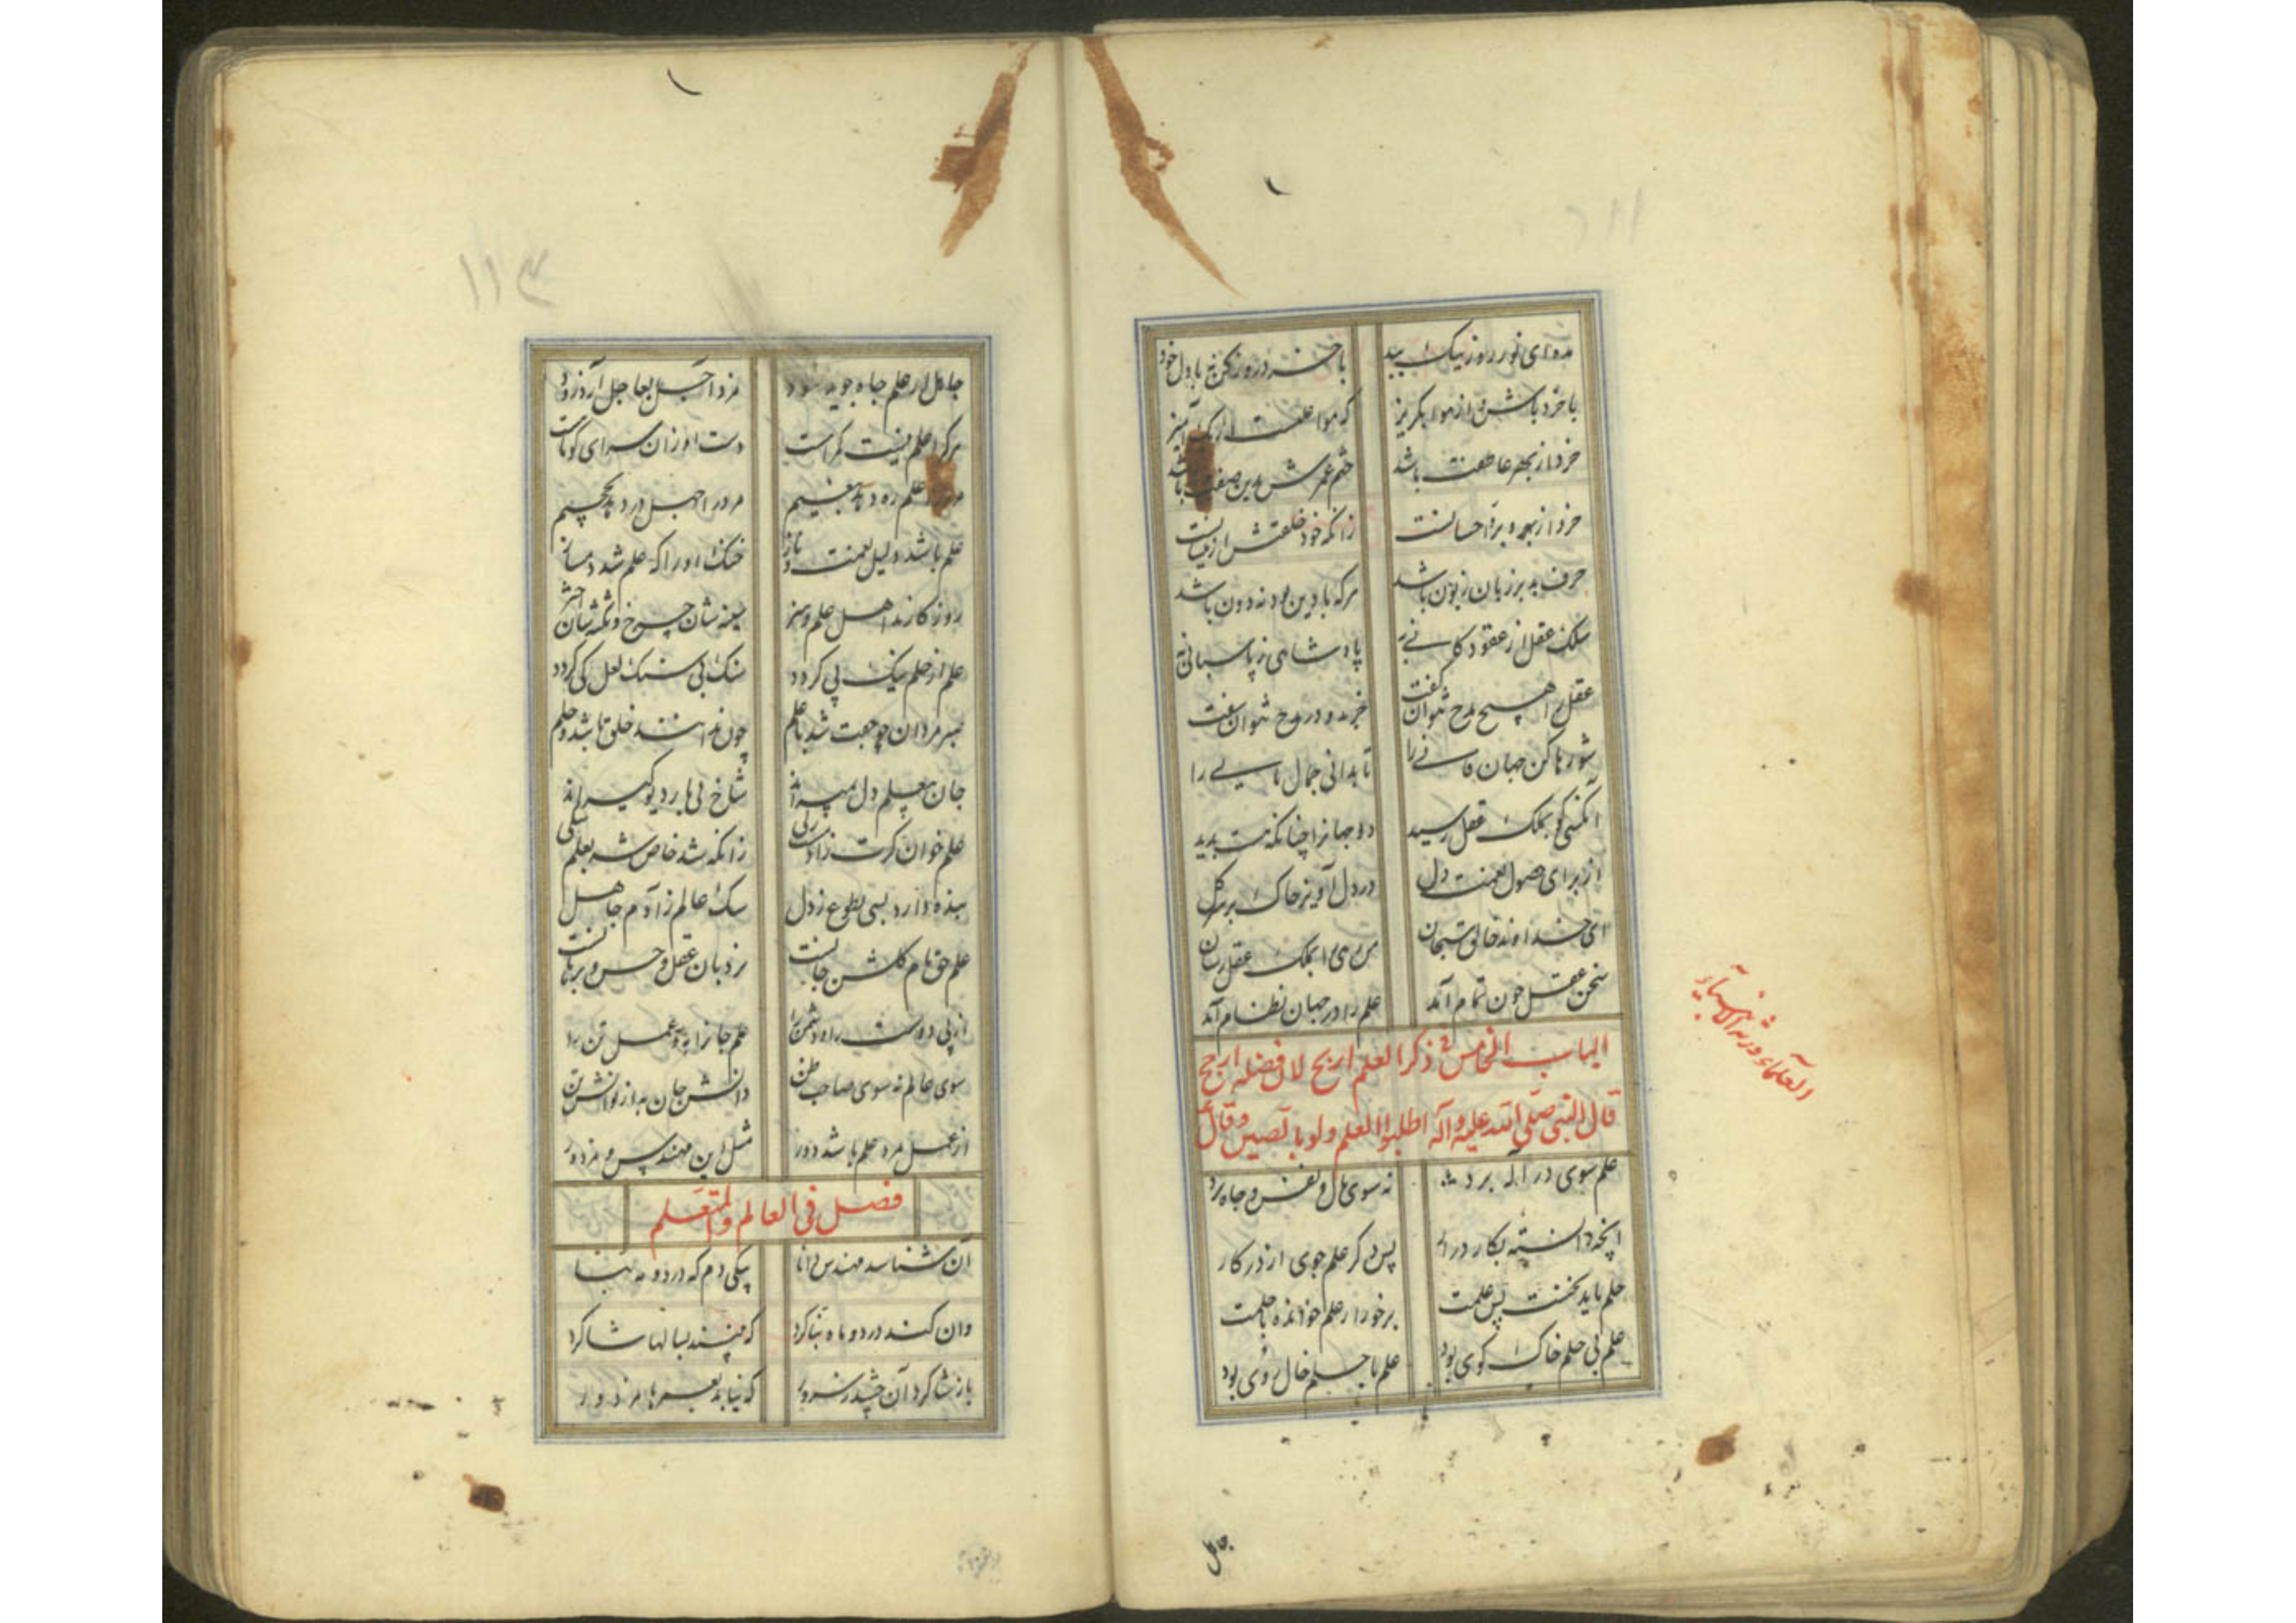 با خرد باش و از هوا بگریز
که هوا علتست
خرد از بهر عاطفت باشد
خرد از بهر بر و احسانست
زانکه خود خلقتش ازینسانست
حرف بد بر زبان زبون باشد
هرکه با دین بود نه دون باشد
سلک عقل از عقود کانی به
پادشاهی ز پاسبانی به
عقل را هیچ مدح نتوان گفت
خر بد و در مدح نتوان سفت
شو رها کن جهان فانی را
تا بدانی جمال باقی را
آنکسی کو بملک عقل رسید
دو جهانرا چنانکه هست بدید
از برای حصول نعمت دل
در دل آویز خاک بر سر گل
ای خداوند خالق سبحان
رهی را بملک عقل رسان
سخن عقل چون تمام آمد
علم را در جهان نظام آمد
الباب الخامس فی ذکر العلم اربح لان فضله ارجح
قال النبی صلی الله علیه وآله اطلبوا العلم ولو بالصین وقال
العلماء ورثة الانبیاء
علم سوی در اله برد
نه سوی مال و نفس و جاه برد
آنچه دانسته بکار در آر
پس دگر علم جوی از در کار
حلم باید نخست پس علمت
برخور از علم خوانده با حلمت
علم بی حلم خاک کوی بود
علم با حلم خال روی بود
جاهل
۱۱۳
جاهل از علم جاه جوید سود
مزد اجل بعاجل آرد زود
هرکرا علم نیست گمراهست
دست او زان سرای کوتاهست
علم ره دهد بنعیم
مرد را جهل در دهد بجحیم
علم باشد دلیل نعمت و ناز
خنک او را که علم شد دمساز
روزگارند اهل علم و هنر
سینه شان چرخ و نکته شان اختر
علم از حلم نیک پی گردد
سنگ بی سنگ لعل کی گردد
هنر مردان چو جفت شد با علم
جان بعلم دل میراند
شاخ بی بار دیو گیراند
علم خوان گرت ز آدم رگی
زانکه شد خاص شه بعلم سگی
بنده دارد بسی بطوع ز دل
سگ عالم ز آدم جاهل
علم حق نام گلشن جانست
نردبان عقل و حس و برهانست
از پی دوست راه و دشمن را
علم جانرا به و عمل تن را
سوی عالم نه سوی صاحب ظن
دانش جان به از توانش تن
از عمل مرد علم باشد دور
مثل این مهندس و مزدور
فصل فی العالم والمتعلم
آن شناسد مهندس دانا
بیکی دم که در دو مه بنا
وان کند در دو ماه بنا کرد
که نبیند بسالها شاگرد
باز شاگرد آن چشد ز سرور
که نیابد بعمرها مزدور